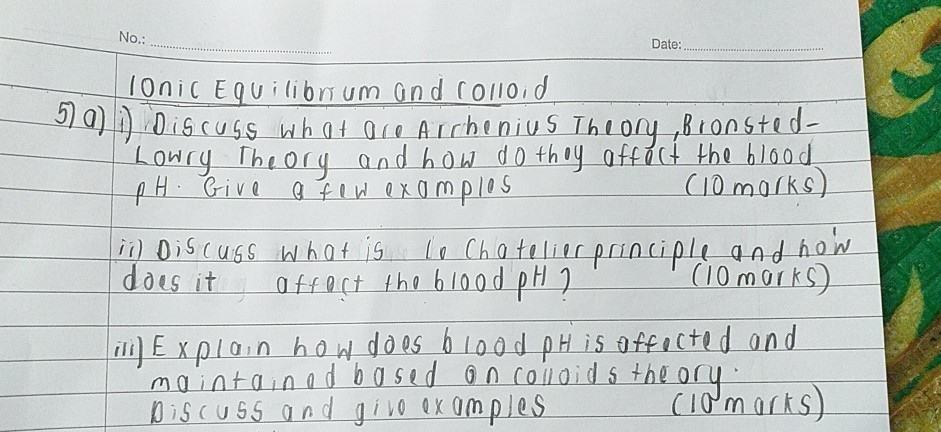 No.:
Date:
Ionic Equilibrium and colloid
5) a) i) Discuss what are Arrhenius Theory, Bronsted-
Lowry Theory and how do they affect the blood
pH. Give a few examples (10 marks)
ii) Discuss what is le Chatelier principle and how
does it affect the blood pH? (10 marks)
iii) Explain how does blood pH is affected and
maintained based on colloids theory.
Discuss and give examples (10 marks)